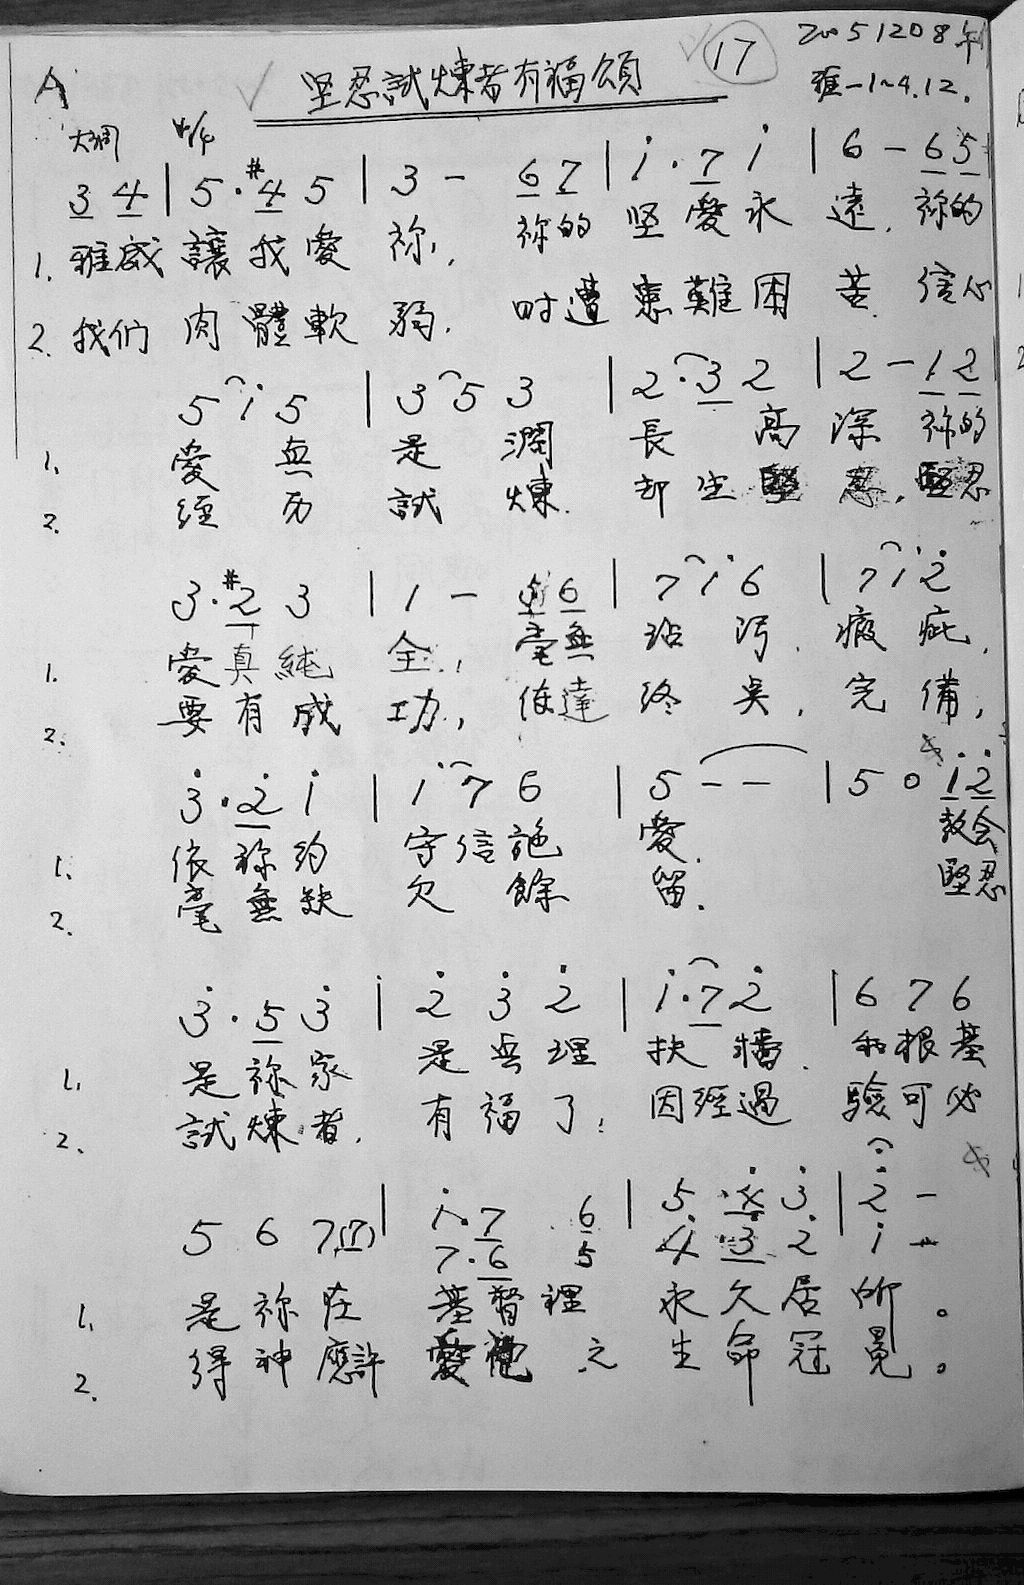 20051208
A 坚忍試煉者有福頌 17 雅一1~4.12.
大調 4/4
3 4 | 5 · #4 5 | 3 - 6 7 | i · 7 i | 6 - 6 5
1. 雅威 讓我愛 祢, 祢的 坚愛永 遠, 祢的
2. 我们 肉體軟 弱, 时遭 患難困 苦 信心
5 i 5 | 3 5 3 | 2 · 3 2 | 2 - 1 2
1. 愛無 是濶 長高 深 祢的
2. 經历 試煉. 却生堅 忍, 堅忍
3 · #2 3 | 1 - 5 6 | 7 i 6 | 7 i 2
1. 愛真純 全, 毫無 玷污, 瘢疵,
2. 要有成 功, 達 終 完備,
3 · 2 i | i 7 6 | 5 - - | 5 0 i 2
1. 依祢约 守信施 愛. 教会
2. 毫無缺 欠餘 留. 堅忍
3 · 5 3 | 2 3 2 | i · 7 2 | 6 7 6
1. 是祢家 是真理 扶墻. 和根基
2. 試煉者, 有福了, 因經過 驗可必
5 6 7 (7) | i · 7 6 | 5 · 4 3 | 2 -
7 · 6 5 4 3 2 i -
1. 是祢在 基督裡 永久居所。
2. 得神應許 愛 之 生命冠冕。